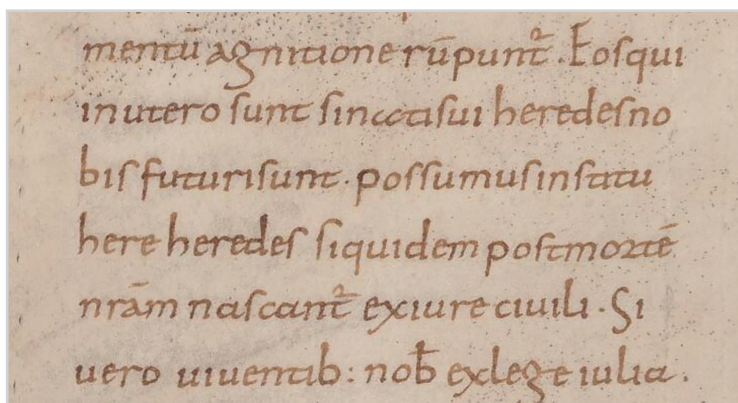 mentū agnitione rūpunt᷑. Eosqui
inutero sunt sinatisui heredesno
bis futurisunt. possumusinstitu
here heredes siquidem postmortē
nrām nascant᷑ exiure ciuili. Si
uero uiuentib: nob̄ exlege iulia.